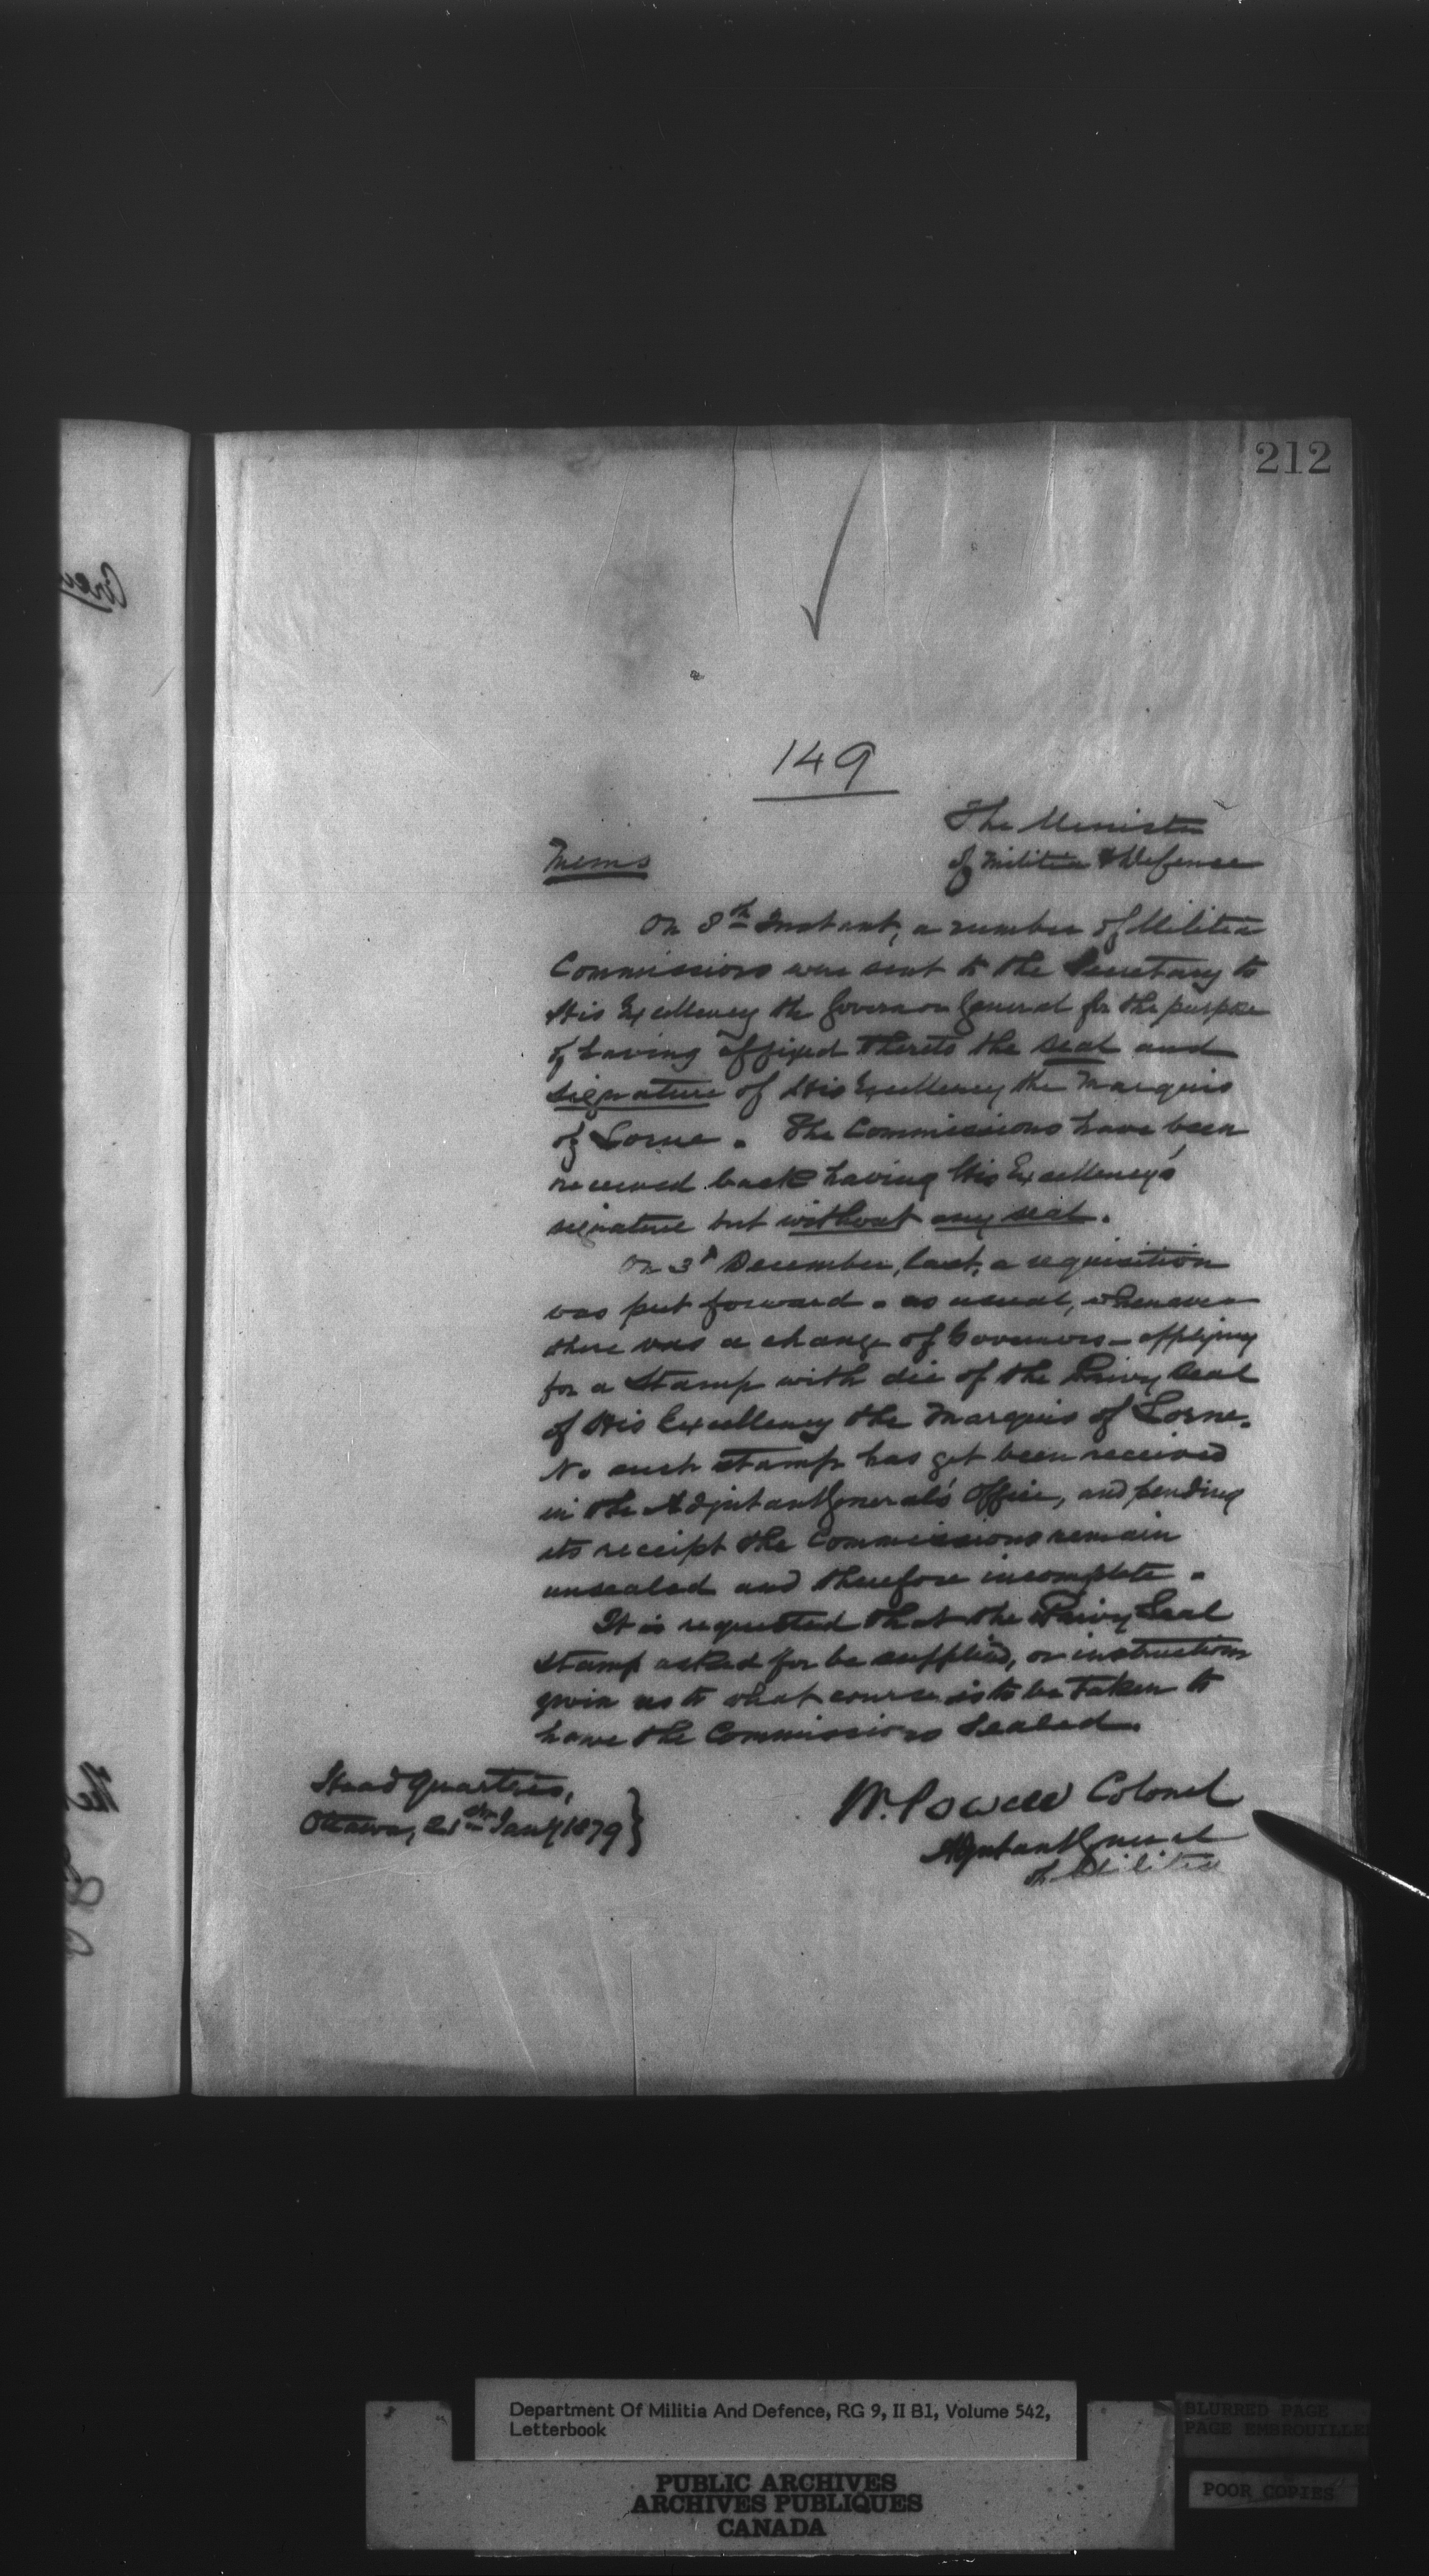 212
149
The Minister
of Militia & Defence
Memo
On 8th Instant, a number of Militia
Commissions were sent to the Secretary to
His Excellency the Governor General for the purpose
of having affixed thereto the seal and
signature of His Excellency the Marquis
of Lorne. The Commissions have been
received back having His Excellency's
signature but without any seal.
On 3d December, last, a requisition
was put forward - as usual, whenever
there was a change of Governors - applying
for a Stamp with die of the Privy Seal
of His Excellency the Marquis of Lorne.
No such stamp has yet been received
in the Adjutant General's Office, and pending
its receipt the Commissions remain
unsealed and therefore incomplete.
It is requested that the Privy Seal
Stamp asked for be supplied, or instructions
given as to what course is to be taken to
have the Commissions Sealed.
Head Quarters,
Ottawa, Jany 1879
W. Powell Colonel
Adjutant General
of Militia
Department Of Militia And Defence, RG 9, II B1, Volume 542,
Letterbook
PUBLIC ARCHIVES
ARCHIVES PUBLIQUES
CANADA
BLURRED PAGE
PAGE EMBROUILLE
POOR COPIES